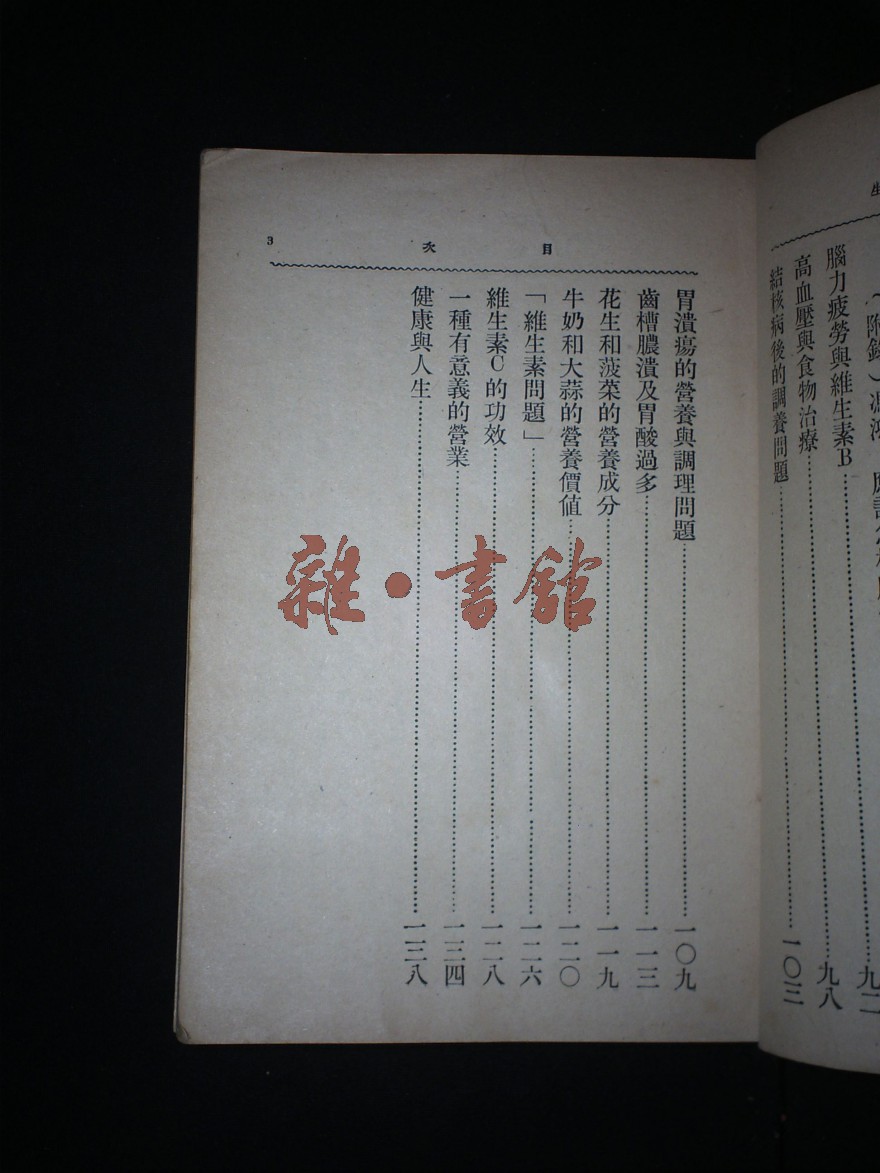 腦力疲勞與維生素B
九八
高血壓與食物治療
結核病後的調養問題
一〇三
目次
3
胃潰瘍的營養與調理問題
一〇九
齒槽膿潰及胃酸過多
一一三
花生和菠菜的營養成分
一一九
牛奶和大蒜的營養價值
一二〇
「維生素問題」
一二六
維生素C的功效
一二八
一種有意義的營業
一三四
健康與人生
一三八
雜·書館